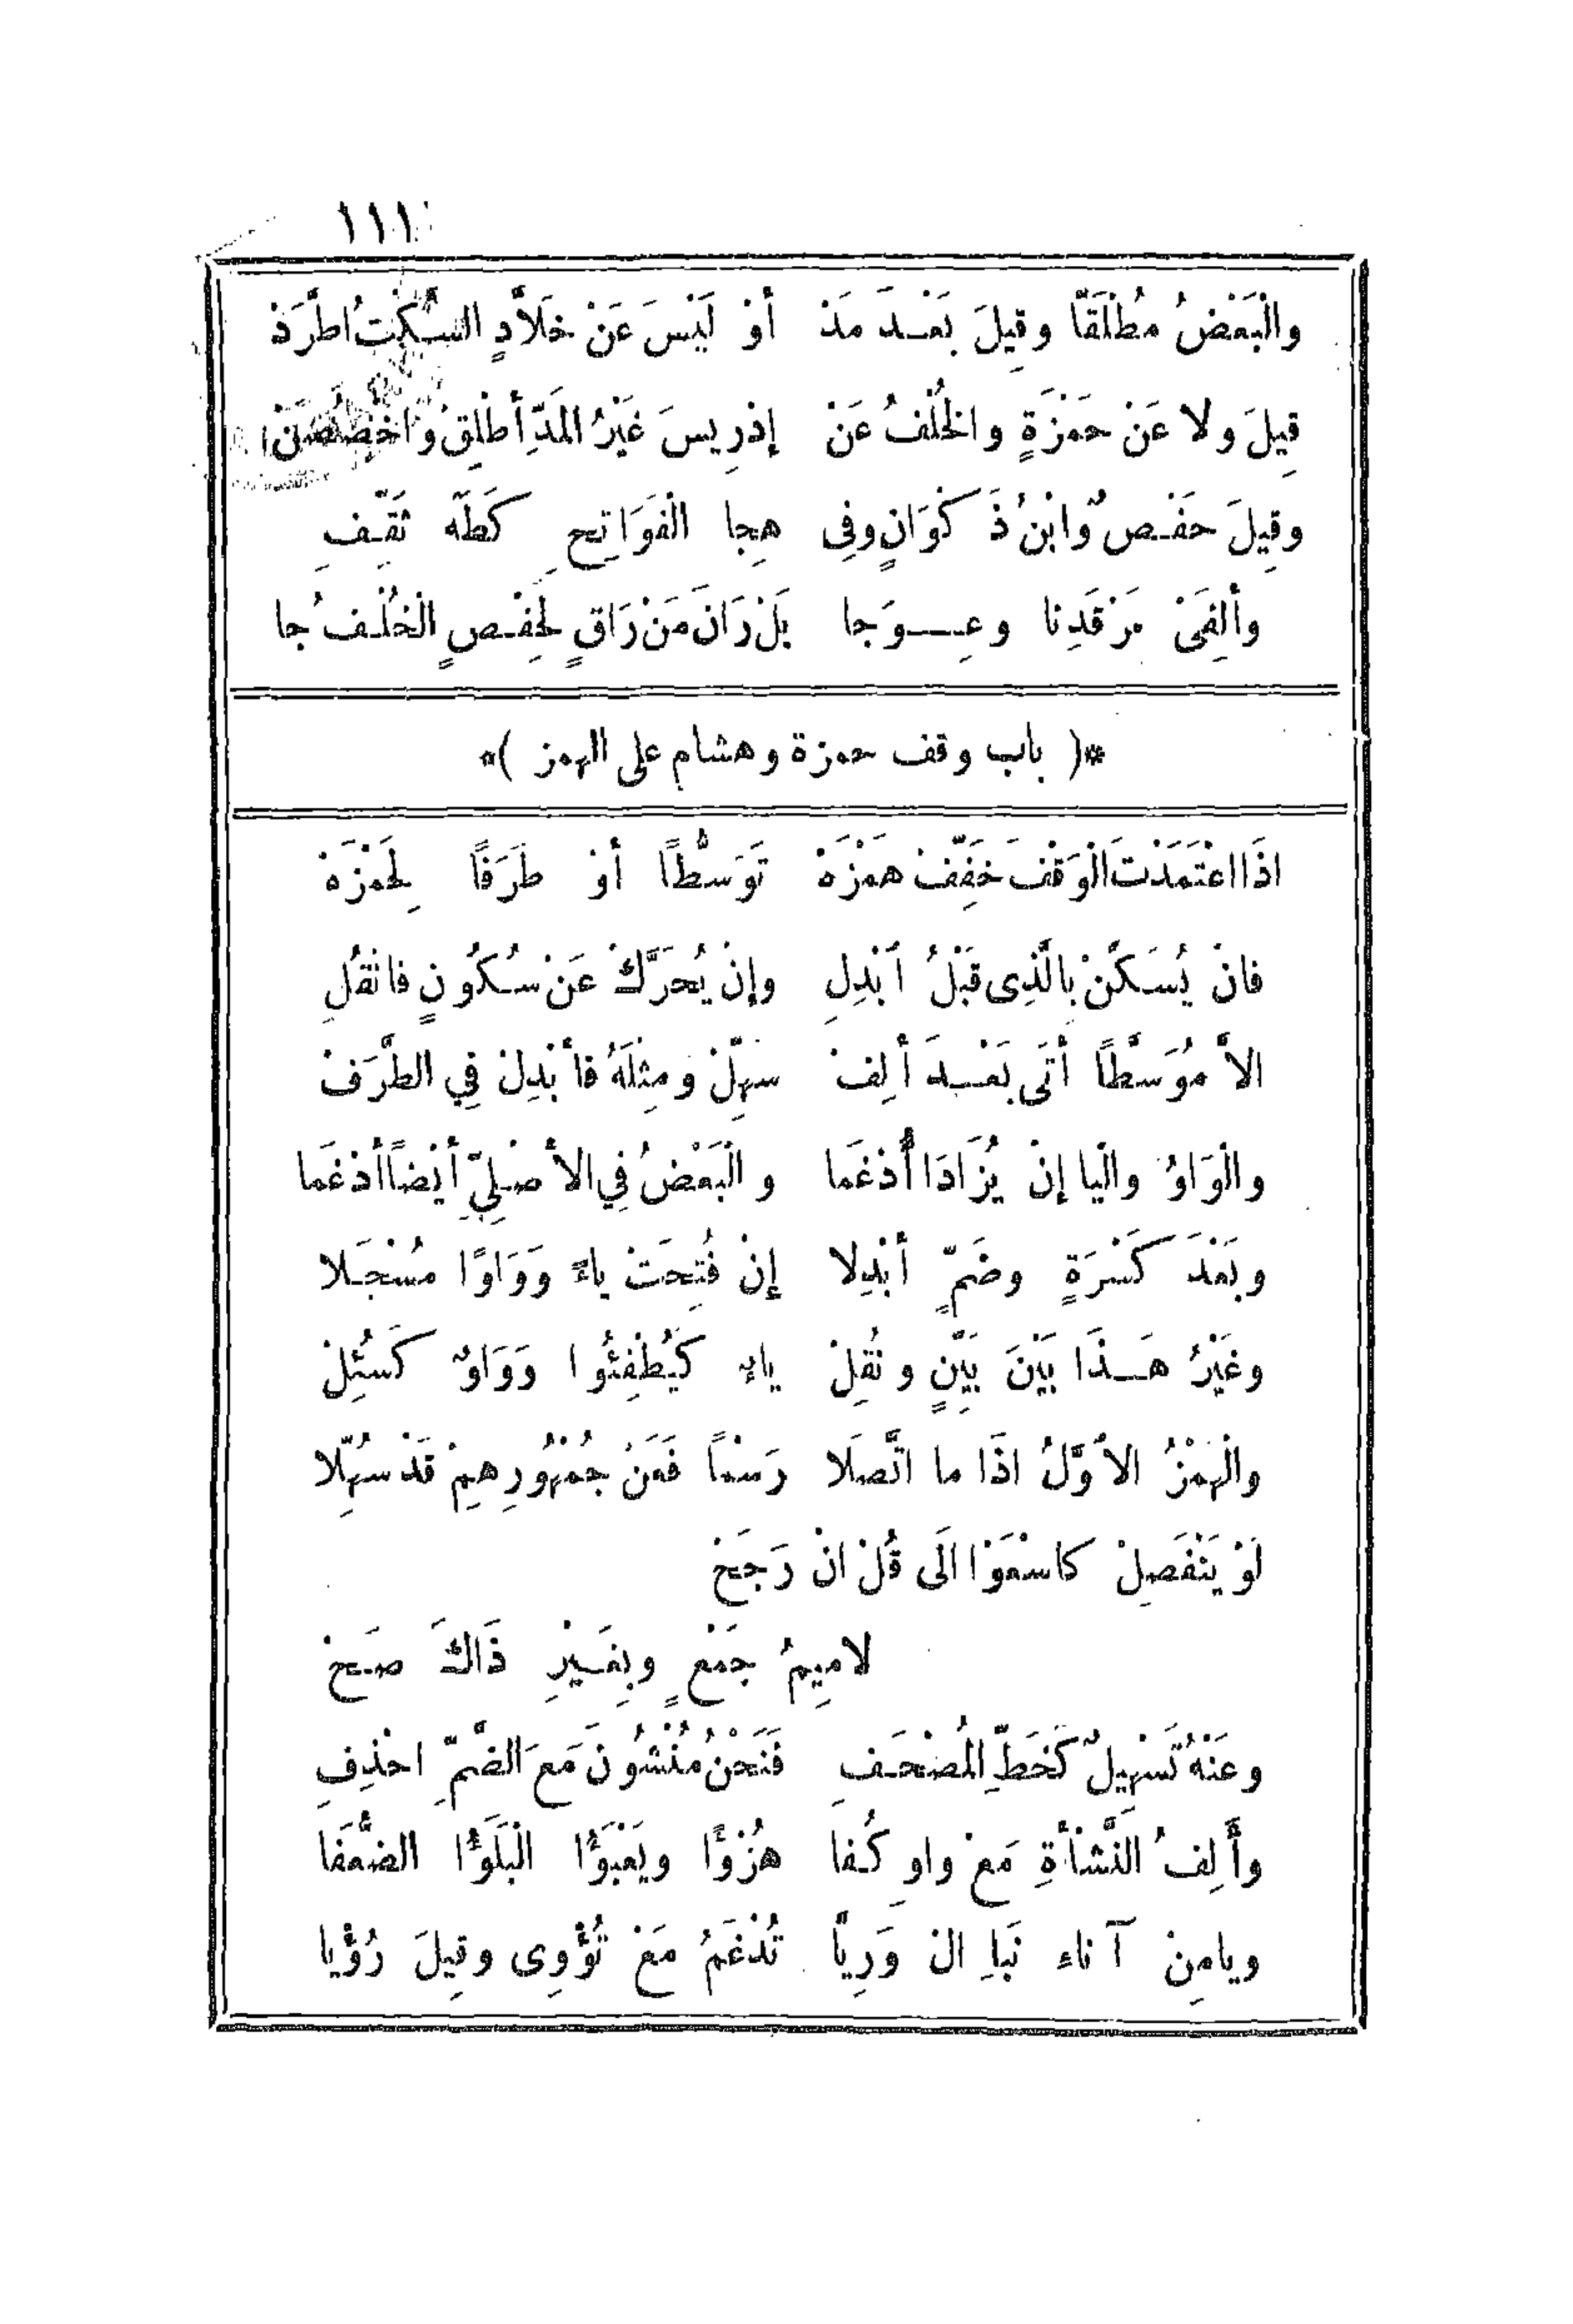 ١١١
والْبَعْضُ مُطْلَقًا وقِيلَ بَعْدَ مَدْ أوْ لَيْسَ عَنْ خَلاَّدٍ السَّكْتُ اطَّرَدْ
قِيلَ ولا عَنْ حَمْزَةٍ والخُلْفُ عَنْ إدْرِيسَ غَيْرُ المَدِّ أطْلِقْ واخْصُصَنْ
وقِيلَ حَفْصٌ وابْنُ ذَكْوَانٍ وفِى هِجا الْفَوَاتِحِ كَطَهَ ثَقِّفِ
وألِفَىْ مَرْقَدِنا وعِوَجا بَلْ رَانَ مَنْ رَاقٍ لِحَفْصٍ الْخُلْفُ جا
*( باب وقف حمزة وهشام على الهمز )*
اذَا اعْتَمَدْتَ الْوَقْفَ خَفِّفْ هَمْزَهْ تَوَسُّطًا أوْ طَرَفًا لِحَمْزَهْ
فانْ يُسَكَّنْ بالَّذِى قَبْلُ أبْدِلِ وإنْ يُحَرَّكْ عَنْ سُكُونٍ فانْقُلِ
الاَّ مُوَسَّطًا أتَى بَعْدَ ألِفْ سَهِّلْ ومِثْلَهُ فأبْدِلْ فِي الطَّرَفْ
والْوَاوُ والْيا إنْ يُزَادَا أُدْغَما والْبَعْضُ فِي الأصْلِيِّ أيْضًا أدْغَما
وبَعْدَ كَسْرَةٍ وضَمٍّ أبْدِلا إنْ فُتِحَتْ ياءً وَوَاوًا مُسْجَلا
وغَيْرُ هَذَا بَيْنَ بَيْنٍ ونُقِلْ ياءٍ كَيُطْفِئُوا وَوَاوٌ كَسُئِلْ
والْهَمْزُ الأوَّلُ اذَا ما اتَّصَلَا رَسْمًا فَعَنْ جُمْهُورِهِمْ قَدْ سُهِّلا
لَوْ يَنْفَصِلْ كاسْعَوْا الَى قُلْ انْ رَجَحْ
لامِيمُ جَمْعٍ وبِغَيْرِ ذَاكَ صَحْ
وعَنْهُ تَسْهِيلٌ كَخَطِّ المُصْحَفِ فَنَحْنُ مُنْشُونَ مَعَ الضَّمِّ احْذِفِ
وأَلِفُ النَّشْأةِ مَعْ واوِ كُفا هُزْوًا ويَعْبَؤُا الْبَلَؤُا الضُّعَفَا
ويامِنْ آناءِ نَبَإِ ال وَرِيًّا تُدْغَمُ مَعْ تُؤْوِى وقِيلَ رُؤْيا